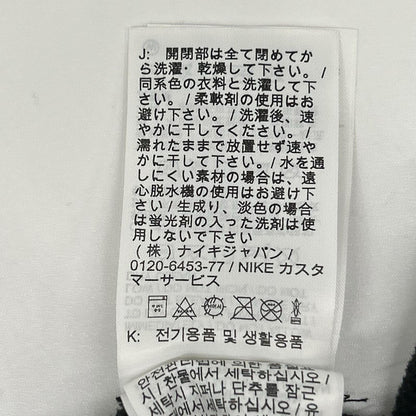 J: 開閉部は全て閉めてか
ら洗濯・乾燥して下さい。/
同系色の衣料と洗濯して下
さい。/ 柔軟剤の使用はお
避け下さい。/ 洗濯後、速
やかに干してください。/
濡れたままで放置せず速や
かに干して下さい。/ 水を通
しにくい素材の場合は、遠
心脱水機のご使用はお避け下
さい / 生成り、淡色の場合
は蛍光剤の入った洗剤は使
用しないで下さい
(株) ナイキジャパン /
0120-6453-77 / NIKE カスタ
マーサービス
K: 전기용품 및 생활용품
안전관리법에 의한 품질
시 찬물에서 세탁하십시오 /
세탁시 지퍼나 단추를 잠그
하십시오 /